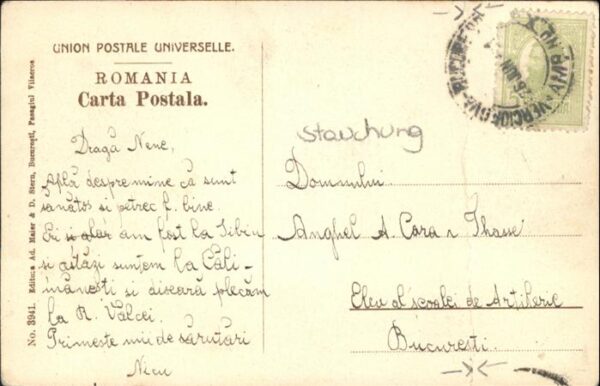 UNION POSTALE UNIVERSELLE.
ROMANIA
Carta Postala.
No. 3941. Editura Ad. Maier & D. Stern, Bucureşti, Pasagiul Villacros
Stauchung
Dragă Nene,
Află despre mine că sunt
sănătos si petrec f. bine.
Eri si alar am fost la Sibiu
si astăzi suntem la Căli-
mănesti si diseară plecăm
la R. Vâlcei.
Primeste mii de sărutări
Nicu
Domnului
Anghel A. Cara
Elev al scoalei de Artilerie
Bucuresti.